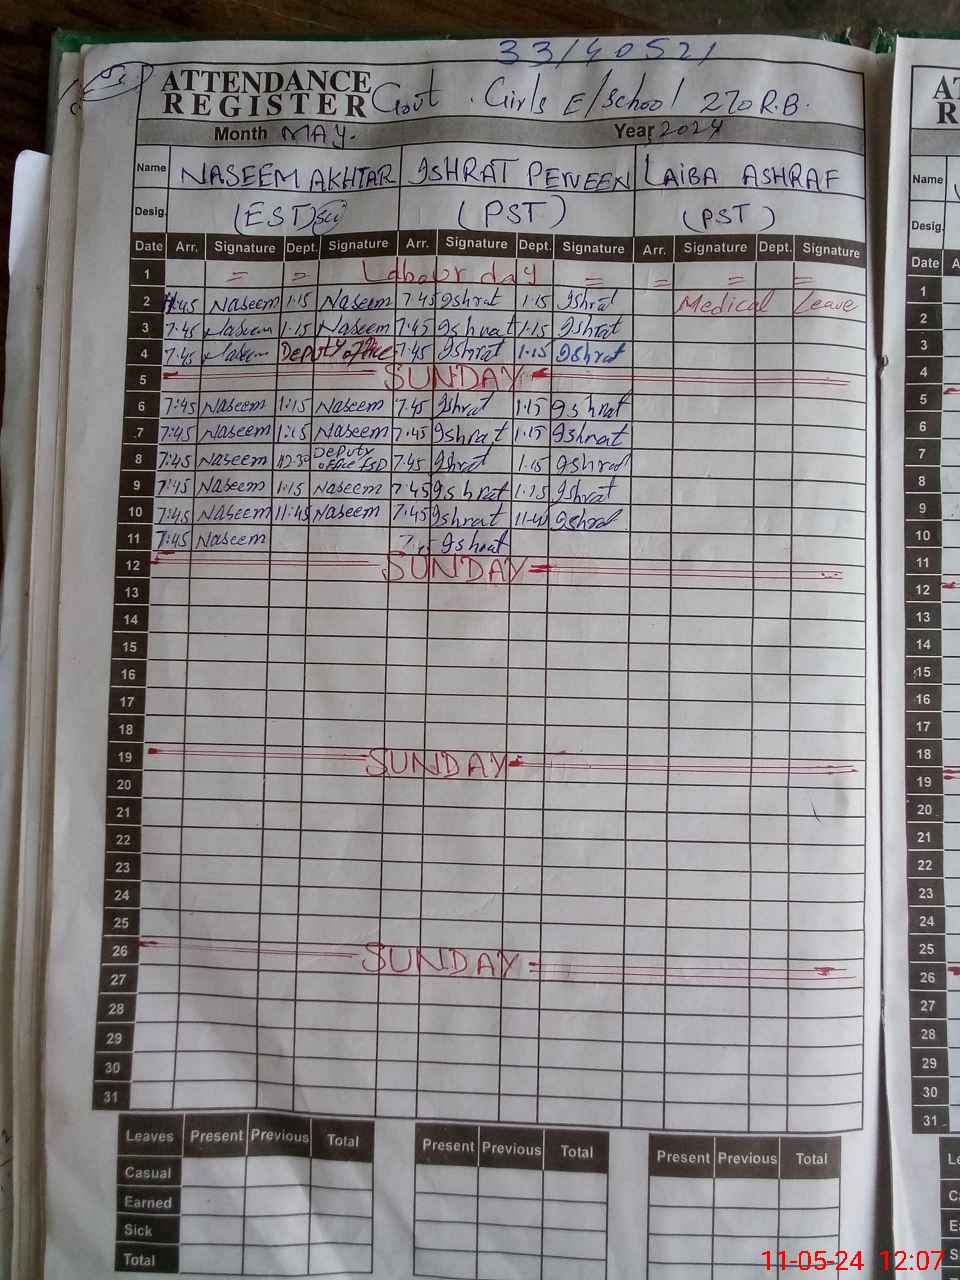 33/40521
ATTENDANCE
REGISTER Govt. Girls E/School 270 R.B.
Month MAY. Year 2024
Name NASEEM AKHTAR IsHRAT PERVEEN LAIBA ASHRAF
Desig. (EST) Sci (PST) (PST)
Date Arr. Signature Dept. Signature Arr. Signature Dept. Signature Arr. Signature Dept. Signature
1 = = Labour day = = = =
2 7:45 Naseem 1:15 Naseem 7:45 Ishrat 1:15 Ishrat Medical Leave
3 7:45 Naseem 1:15 Naseem 7:45 Ishrat 1:15 Ishrat
4 7:45 Naseem Deputy office 7:45 Ishrat 1:15 Ishrat
5 SUNDAY
6 7:45 Naseem 1:15 Naseem 7:45 Ishrat 1:15 Ishrat
7 7:45 Naseem 1:15 Naseem 7:45 Ishrat 1:15 Ishrat
8 7:45 Naseem 12:30 Deputy office FSD 7:45 Ishrat 1:15 Ishrat
9 7:45 Naseem 1:15 Naseem 7:45 Ishrat 1:15 Ishrat
10 7:45 Naseem 11:45 Naseem 7:45 Ishrat 11:45 Ishrat
11 7:45 Naseem 7:45 Ishrat
12 SUNDAY
13
14
15
16
17
18
19 SUNDAY
20
21
22
23
24
25
26 SUNDAY
27
28
29
30
31
Leaves Present Previous Total Present Previous Total Present Previous Total
Casual
Earned
Sick
Total
Name
Desig.
Date
1
2
3
4
5
6
7
8
9
10
11
12
13
14
15
16
17
18
19
20
21
22
23
24
25
26
27
28
29
30
31
11-05-24 12:07